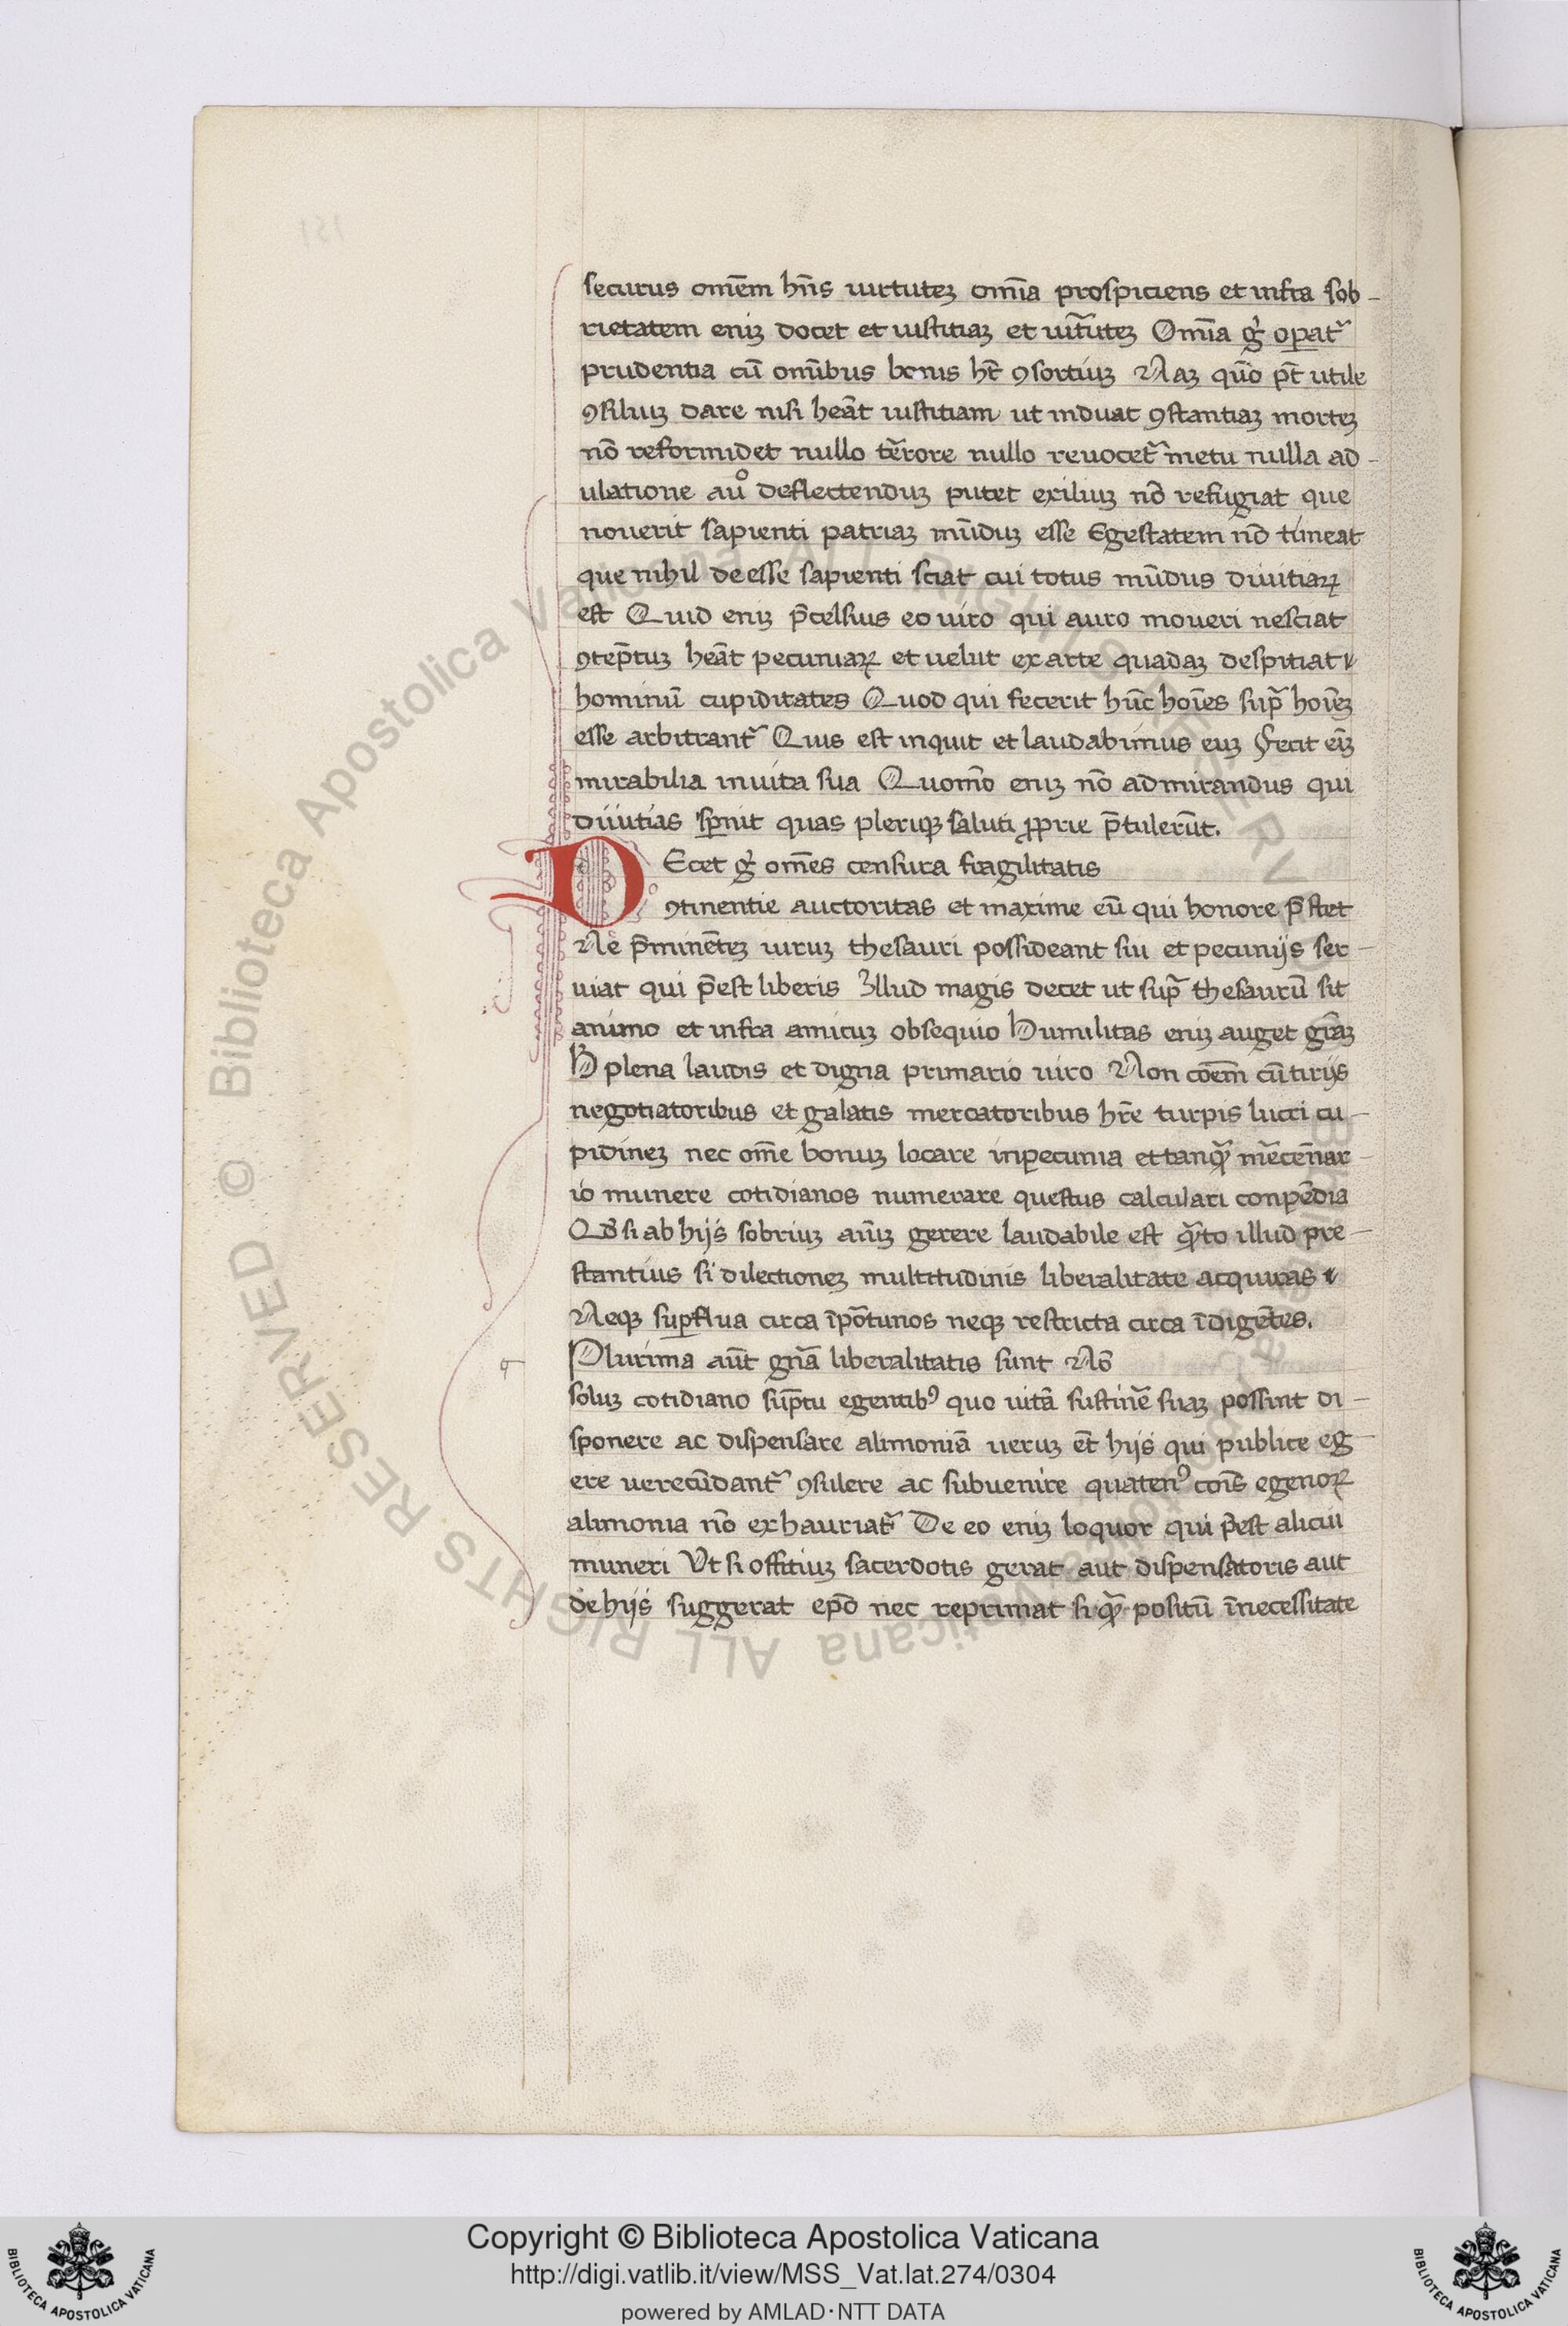 securus om̅em hn̅s uirtuteꝫ om̅ia prospiciens et infra sob-
rietatem eniꝫ docet et iustitiaꝫ et uirt̅uteꝫ Om̅ia g̉ oꝑat᷑
prudentia cu̅ om̅ibus bonis ht̅ ꝯsortiuꝫ Naꝫ quo̅ pt̅ utile
ꝯsiliuꝫ dare nisi hea̅t iustitiam ut induat ꝯstantiaꝫ morteꝫ
no̅ reformidet nullo te̅rore nullo reuocet᷑ metu nulla ad-
ulatione aů deflectenduꝫ putet exiliuꝫ no̅ refugiat que
nouerit sapienti patriaꝫ mu̅duꝫ esse Egestatem no̅ timeat
que nihil deesse sapienti sciat cui totus mu̅dus diuitiaꝝ
est Quid eniꝫ p̅celsius eo uiro qui auro moueri nesciat
ꝯtep̅tuꝫ hea̅t pecuniaꝝ et uelut ex arte quadaꝫ despitiat
hominu̅ cupiditates Quod qui fecerit hu̅c hoi̅es sup̅ hoi̅eꝫ
esse arbitrant᷑ Quis est inquit et laudabimus euꝫ Fecit ei̅ꝫ
mirabilia in uita sua Quomo̅ eniꝫ no̅ admirandus qui
diuitias sꝑnit quas pleriqꝫ saluti ꝓprie p̅tuleru̅t.
DEcet g̉ om̅es censura fragilitatis
ꝯtinentie auctoritas et maxime eu̅ qui honore p̅stet
Ne p̅mine̅teꝫ uiruꝫ thesauri possideant sui et pecunijs ser-
uiat qui p̅est liberis Illud magis decet ut sup̅ thesauru̅ sit
animo et infra amicuꝫ obsequio Humilitas eniꝫ auget gr̅aꝫ
H̅ plena laudis et digna primario uiro Non co̅em̅ cu̅ tirijs
negotiatoribus et galatis mercatoribus hr̅e turpis lucri cu-
pidineꝫ nec om̅e bonuꝫ locare in pecunia et tanqꝫ̅ me̅rce̅nar-
io munere cotidianos numerare questus calculari conpe̅dia
Qd̅ si ab hijs sobriuꝫ ai̅uꝫ gerere laudabile est qua̅to illud pre-
stantius si dilectioneꝫ multitudinis liberalitate acquiras
Neqꝫ suꝑflua circa i̅po̅tunos neqꝫ restricta circa i̅dige̅tes.
Plurima aut̅ gn̅a liberalitatis sunt No̅
soluꝫ cotidiano su̅ptu egentibꝰ quo uita̅ sustine̅ suaꝫ possint di-
sponere ac dispensare alimonia̅ ueruꝫ et̅ hijs qui publice eg-
ere uerecu̅dant᷑ ꝯsulere ac subuenire quatenꝰ coi̅s egenoꝝ
alimonia no̅ exhauriat᷑ De eo eniꝫ loquor qui p̅est alicui
muneri Vt si offitiuꝫ sacerdotis gerat aut dispensatoris aut
de hijs suggerat ep̅o nec reprimat si qꝫ̅ positu̅ i̅ necessitate
Biblioteca Apostolica Vaticana ALL RIGHTS RESERVED ©
Copyright © Biblioteca Apostolica Vaticana
http://digi.vatlib.it/view/MSS_Vat.lat.274/0304
powered by AMLAD·NTT DATA
BIBLIOTECA APOSTOLICA VATICANA
BIBLIOTECA APOSTOLICA VATICANA